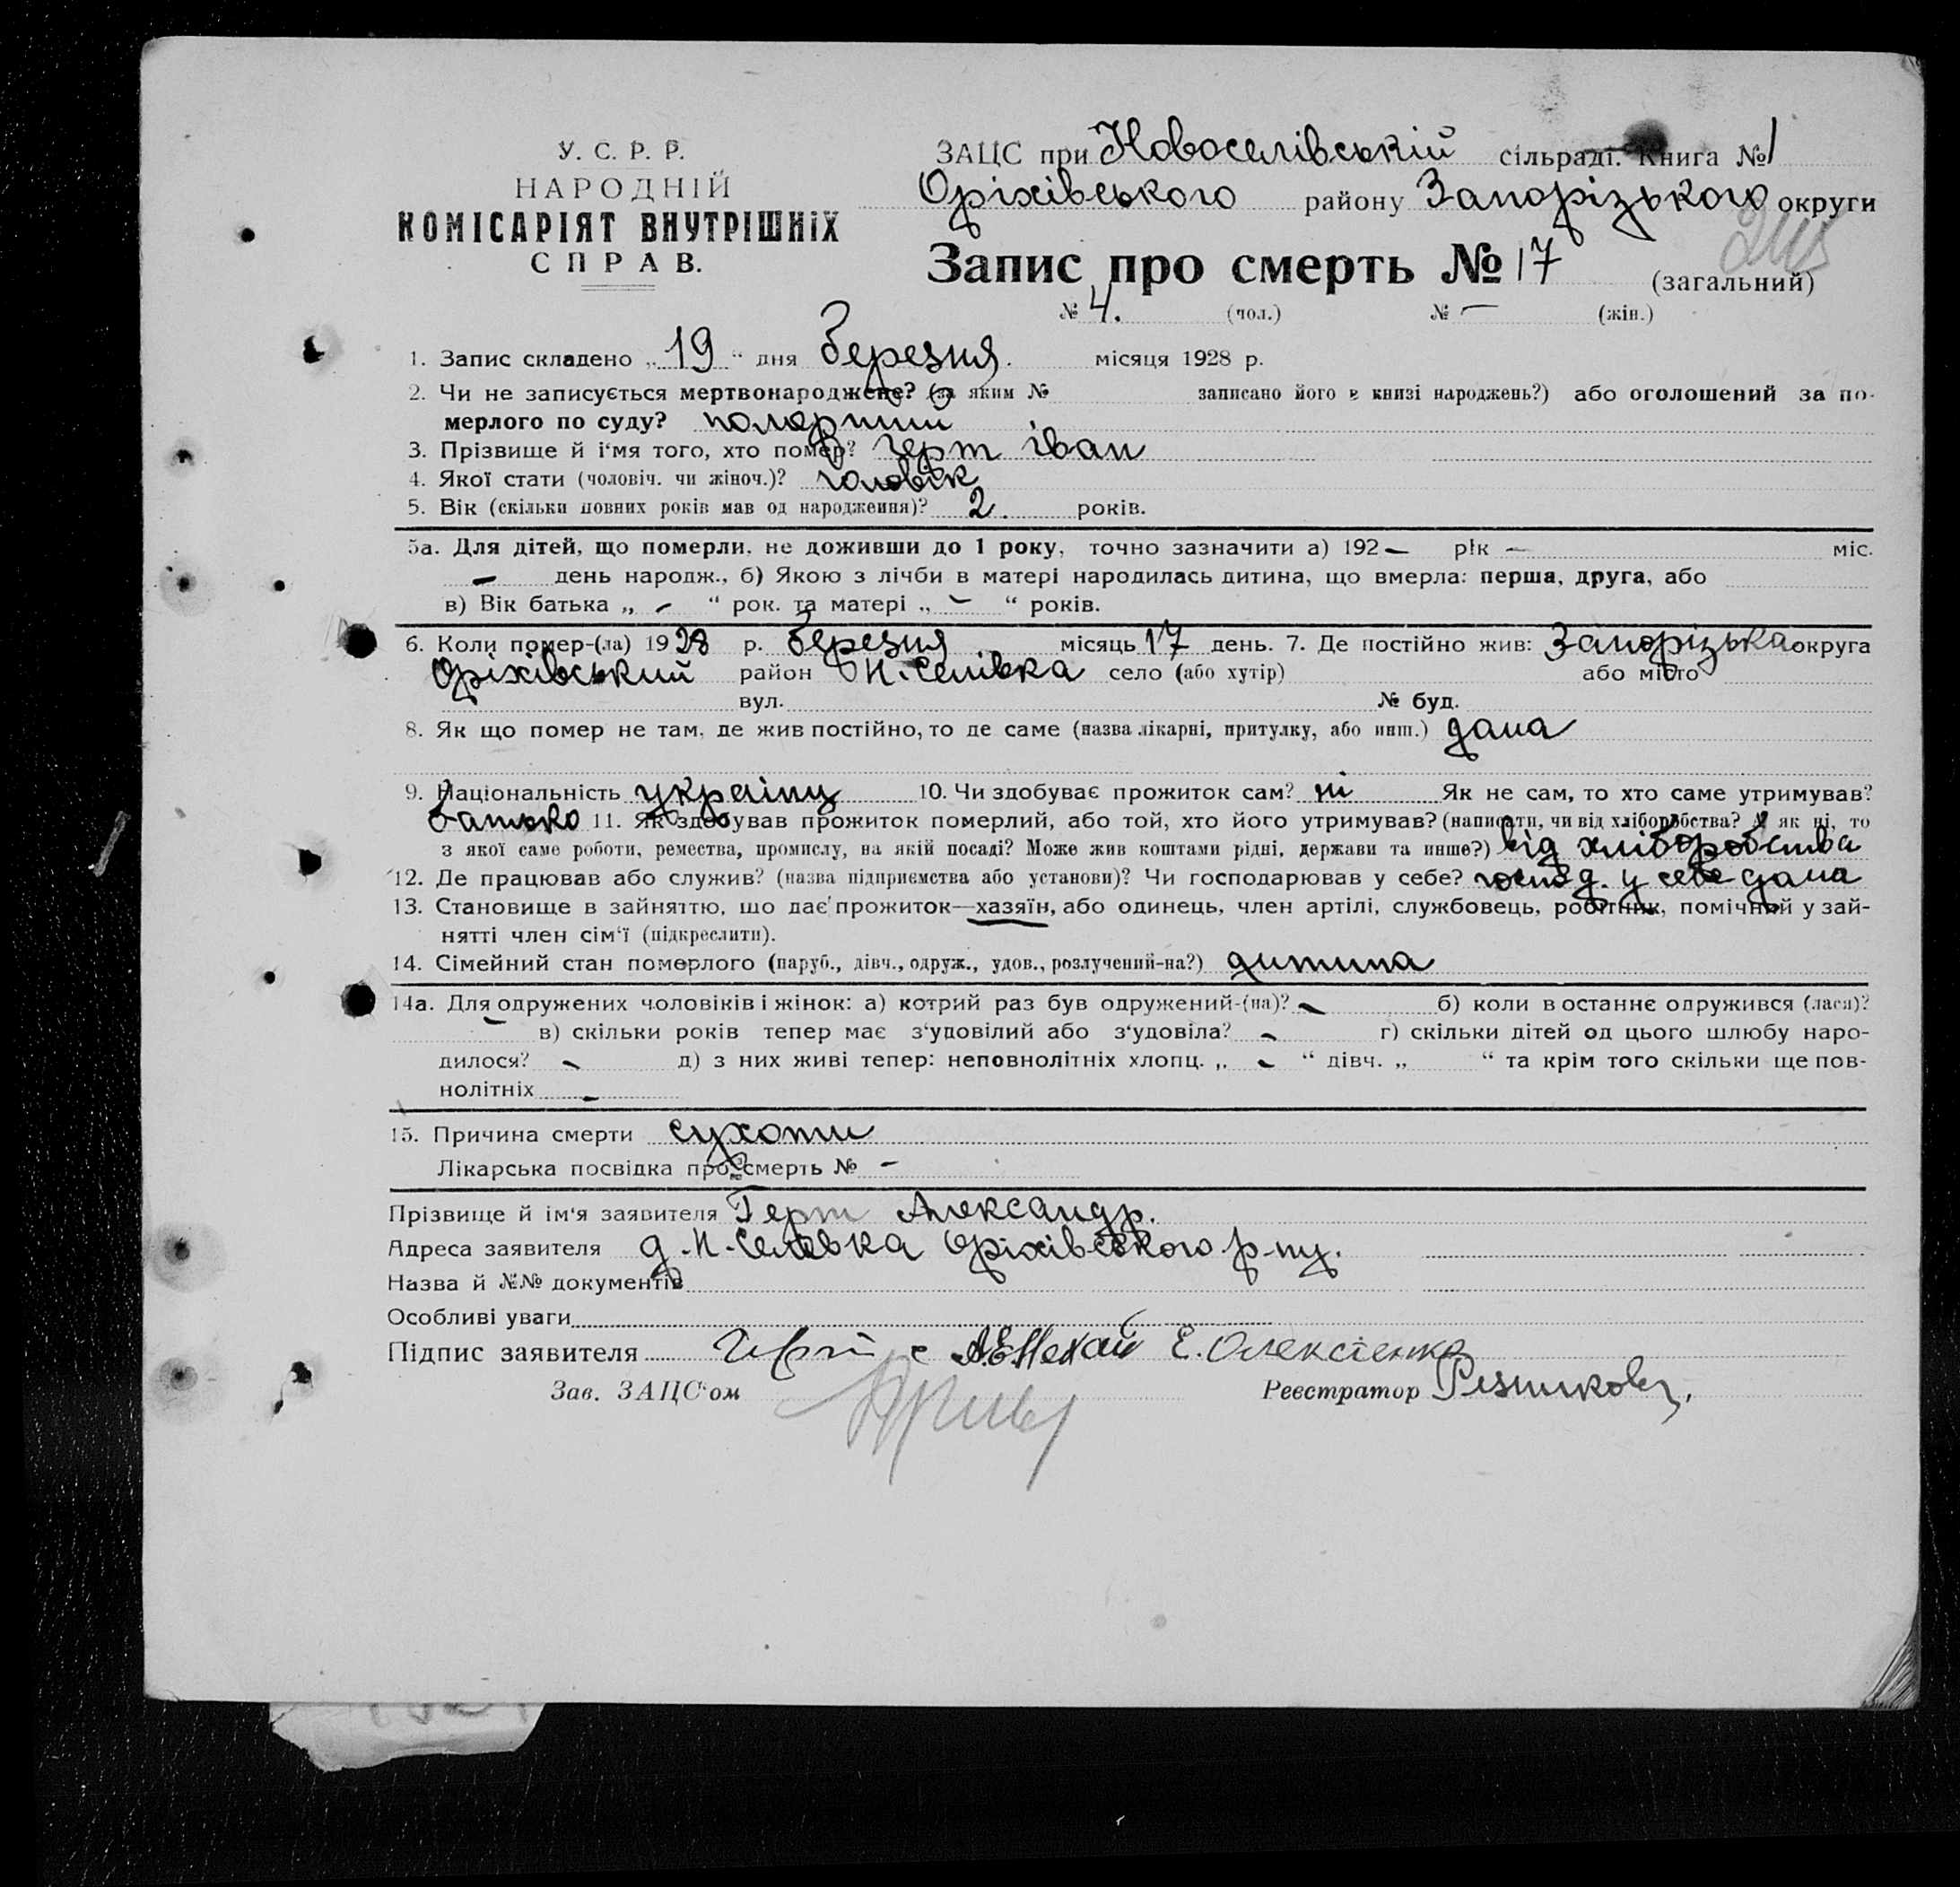 У. С. Р. Р.
НАРОДНІЙ
КОМІСАРІЯТ ВНУТРІШНІХ
СПРАВ.
ЗАЦС при Новоселівській сільраді. Книга № 1
Оріхівського району Запорізького округи
Запис про смерть № 17 (загальний)
№ 4. (чол.) № — (жін.)
1. Запис складено „19“ дня березня. місяця 1928 р.
2. Чи не записується мертвонароджене? (за яким № записано його в книзі народжень?) або оголошений за по-
мерлого по суду?
3. Прізвище й і'мя того, хто помер? Герт іван
4. Якої стати (чоловіч. чи жіноч.)? чоловік
5. Вік (скільки повних років мав од народження)? 2. років.
5а. Для дітей, що померли, не доживши до 1 року, точно зазначити а) 192 — рік — міс.
— день народж., б) Якою з лічби в матері народилась дитина, що вмерла: перша, друга, або
в) Вік батька „ — “ рок. та матері „ — “ років.
6. Коли помер-(ла) 1928 р. березня місяць 17 день. 7. Де постійно жив: Запорізька округа
Оріхівський район Н.Селівка село (або хутір) або місто
вул. № буд.
8. Як що помер не там, де жив постійно, то де саме (назва лікарні, притулку, або инш.) дома
9. Національність українц 10. Чи здобуває прожиток сам? ні Як не сам, то хто саме утримував?
батько 11. Як здобував прожиток померлий, або той, хто його утримував? (написати, чи від хліборобства? А як ні, то
з якої саме роботи, ремества, промислу, на якій посаді? Може жив коштами рідні, держави та инше?) від хліборобства
12. Де працював або служив? (назва підприємства або установи)? Чи господарював у себе? господ. у себе дома
13. Становище в зайняттю, що дає прожиток—хазяїн, або одинець, член артілі, службовець, робітник, помічний у зай-
нятті член сім'ї (підкреслити).
14. Сімейний стан померлого (паруб., дівч., одруж., удов., розлучений-на?) дитина
14а. Для одружених чоловіків і жінок: а) котрий раз був одружений-(на)? — б) коли в останнє одружився (лася)?
— в) скільки років тепер має з'удовілий або з'удовіла? — г) скільки дітей од цього шлюбу наро-
дилося? — д) з них живі тепер: неповнолітніх хлопц. „ — “ дівч. „ “ та крім того скільки ще пов-
нолітніх —
15. Причина смерти сухоти
Лікарська посвідка про смерть № —
Прізвище й ім'я заявителя Герт Александр.
Адреса заявителя д. Н-Селевка Оріхівського р-ну.
Назва й №№ документів
Особливі уваги
Підпис заявителя Е. Олексієнко
Зав. ЗАЦС'ом Реєстратор